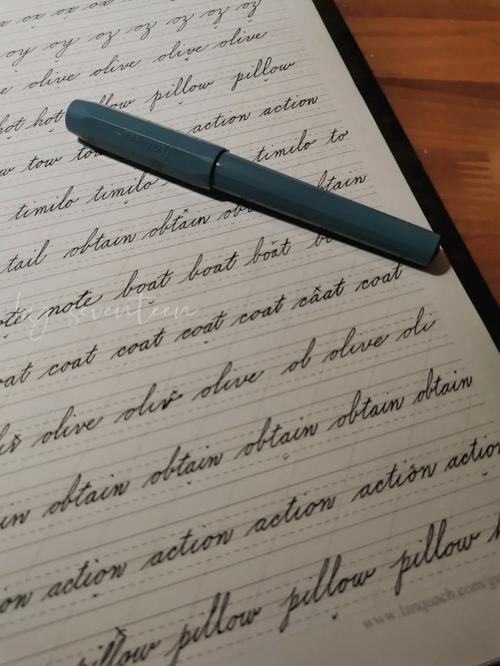 oy oy oz oz oz oz
olive olive olive olive
hot hot pillow pillow
tow action action
timilo timilo timilo to
tail obtain obtain obtain
note note boat boat boat
coat coat coat coat coat coat
olive olive olive ob olive oli
obtain obtain obtain obtain obtain
action action action action action
pillow pillow pillow pillow
by seventeen
www.lanquach.com